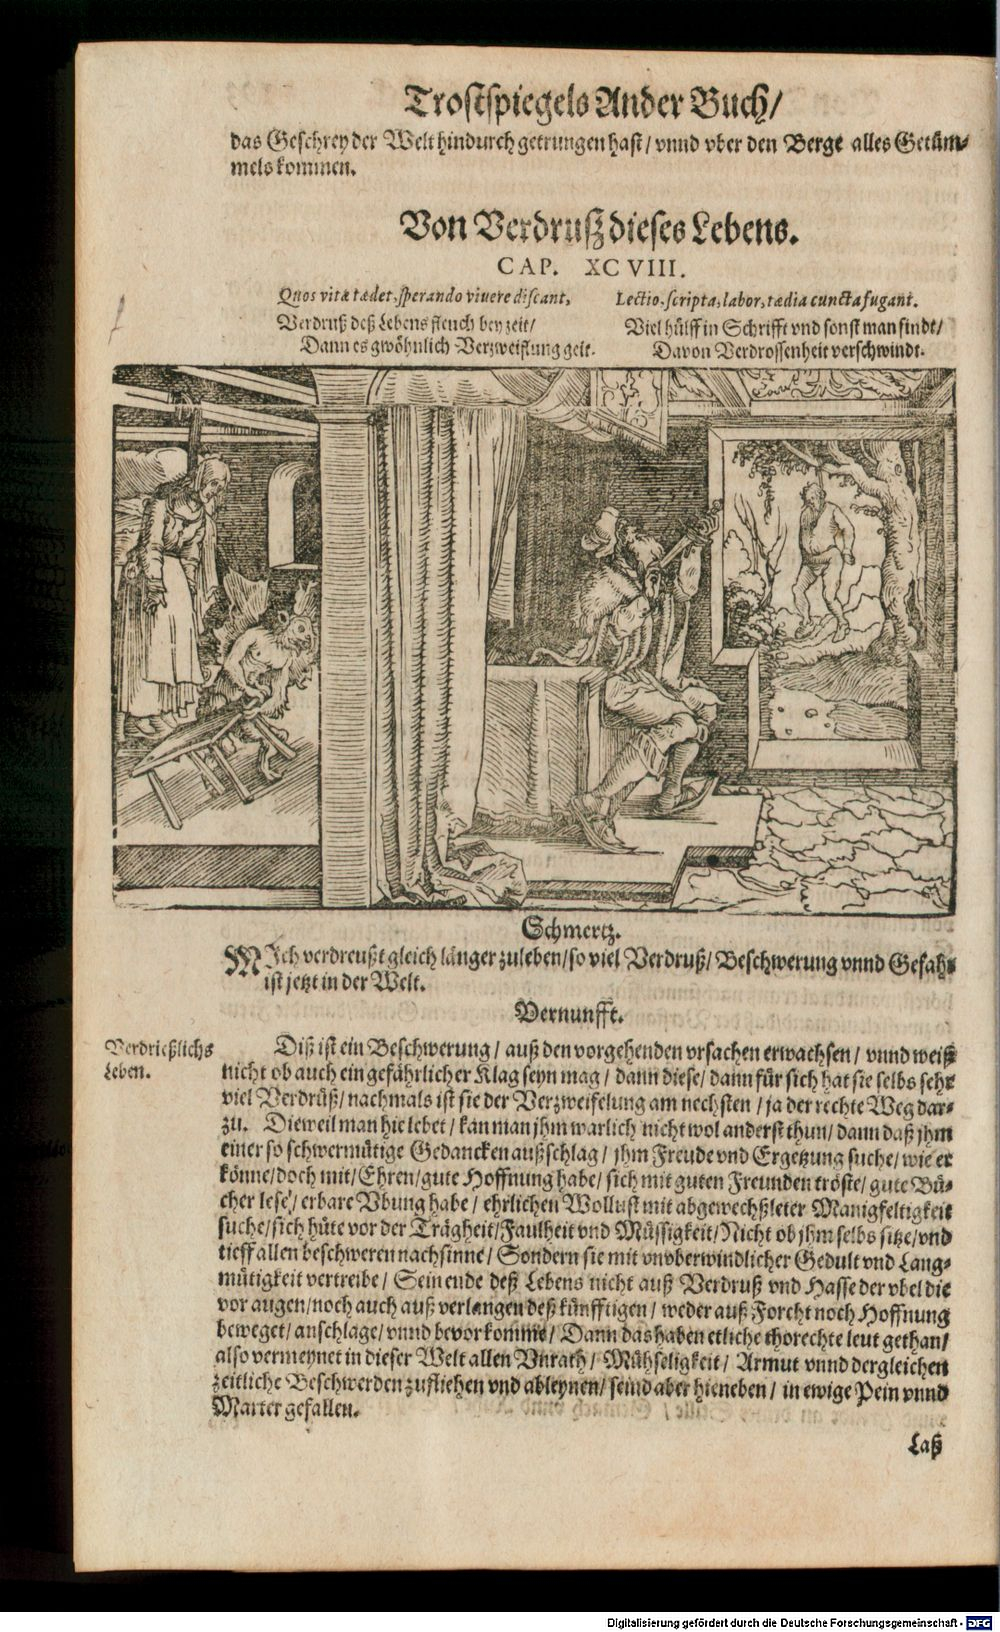 Trostspiegels Ander Buch/
das Geschrey der Welt hindurch getrungen hast/ vnnd vber den Berge alles Getüm-
mels kommen.
Von Verdrusz dieses Lebens.
CAP. XCVIII.
Quos vitæ tædet, sperando viuere discant,
Verdruß deß Lebens fleuch bey zeit/
Dann es gwöhnlich Verzweiflung geit.
Lectio, scripta, labor, tædia cuncta fugant.
Viel hülff in Schrifft vnd sonst man findt/
Davon Verdrossenheit verschwindt.
Schmertz.
MIch verdreußt gleich länger zu leben/ so viel Verdruß/ Beschwerung vnnd Gefahr
ist jetzt in der Welt.
Vernunfft.
Verdrießlichs
Leben.
Diß ist ein Beschwerung/ auß den vorgehenden vrsachen erwachsen/ vnnd weiß
nicht ob auch ein gefährlicher Klag seyn mag/ dann diese/ dann für sich hat sie selbs sehr
viel Verdrüß/ nachmals ist sie der Verzweifelung am nechsten/ ja der rechte Weg dar-
zu. Dieweil man hie lebet/ kan man jhm warlich nicht wol anderst thun/ dann daß jhm
einer so schwermütige Gedancken außschlag/ jhm Freude vnd Ergetzung suche/ wie er
könne/ doch mit/ Ehren/ gute Hoffnung habe/ sich mit guten Freunden tröste/ gute Bü-
cher lese/ erbare Vbung habe/ ehrlichen Wollust mit abgewechßleter Manigfeltigkeit
suche/ sich hüte vor der Trägheit/ Faulheit vnd Müssigkeit/ Nicht ob jhm selbs sitze/ vnd
tieff allen beschweren nachsinne/ Sondern sie mit vnvberwindlicher Gedult vnd Lang-
mütigkeit vertreibe/ Sein ende deß Lebens nicht auß Verdruß vnd Hasse der vbel die
vor augen/ noch auch auß verlangen deß künfftigen/ weder auß Forcht noch Hoffnung
beweget/ anschlage/ vnnd bevor komme/ Dann das haben etliche thorechte leut gethan/
also vermeynet in dieser Welt allen Vnrath/ Mühseligkeit/ Armut vnnd dergleichen
zeitliche Beschwerden zufliehen vnd ableynen/ seind aber hieneben/ in ewige Pein vnnd
Marter gefallen.
Laß
Digitalisierung gefördert durch die Deutsche Forschungsgemeinschaft - DFG